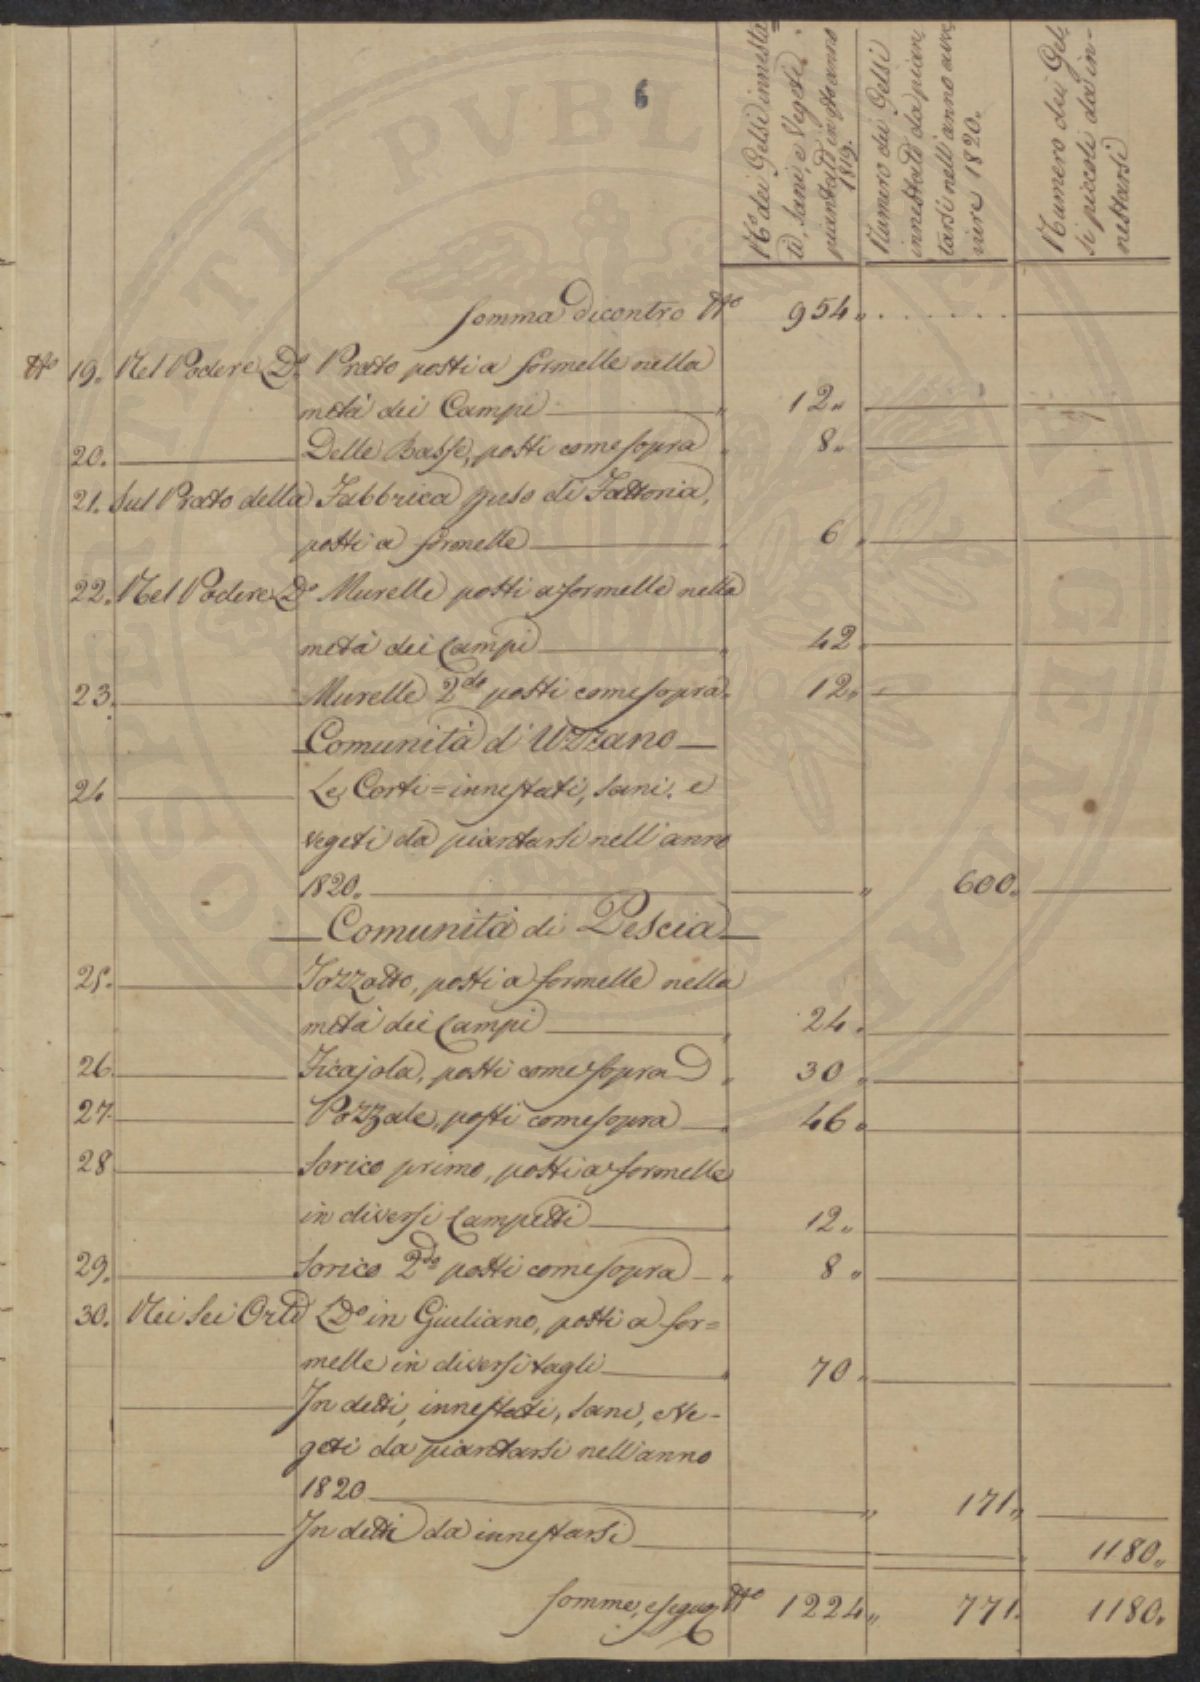 6
N.º dei Gelsi innesta=
ti, sani, e Vegeti,
piantati in qto anno
1819.
Numero dei Gelsi
innestati da pian,
tarsi nell'anno avve,
nire 1820.
Numero dei Gel,
si piccoli da in-
nestarsi
Somma di contro Nº 954 „ . . . . . . .
Nº 19. Nel Podere Dº Prato posti a formelle nella
metà dei Campi „ 12 „
20. Delle Basse, posti come sopra „ 8 „
21. Sul Prato della Fabbrica p uso di Fattoria,
posti a formelle „ 6 „
22. Nel Podere Dº Murelle posti a formelle nella
metà dei Campi „ 42 „
23. Murelle 2do posti come sopra „ 12 „
Comunità d'Uzzano
24 Le Corti = innestati, sani, e
vegeti da piantarsi nell'anno
1820. „ 600 „
Comunità di Pescia
25. Tozzatto, posti a formelle nella
metà dei Campi „ 24 „
26. Ficajola, posti come sopra „ 30 „
27. Pozzale, posti come sopra „ 46 „
28 Sorico primo, posti a formelle
in diversi Campetti „ 12 „
29. Sorico 2do posti come sopra „ 8 „
30. Nei Sei Orti Dº in Giuliano, posti a for=
melle in diversi tagli „ 70 „
In detti, innestati, sani, e Ve-
geti da piantarsi nell'anno
1820 „ 171 „
In detti da innestarsi „ 1180 „
Somme, e segue Nº 1224 „ 771. 1180 „
PVBL